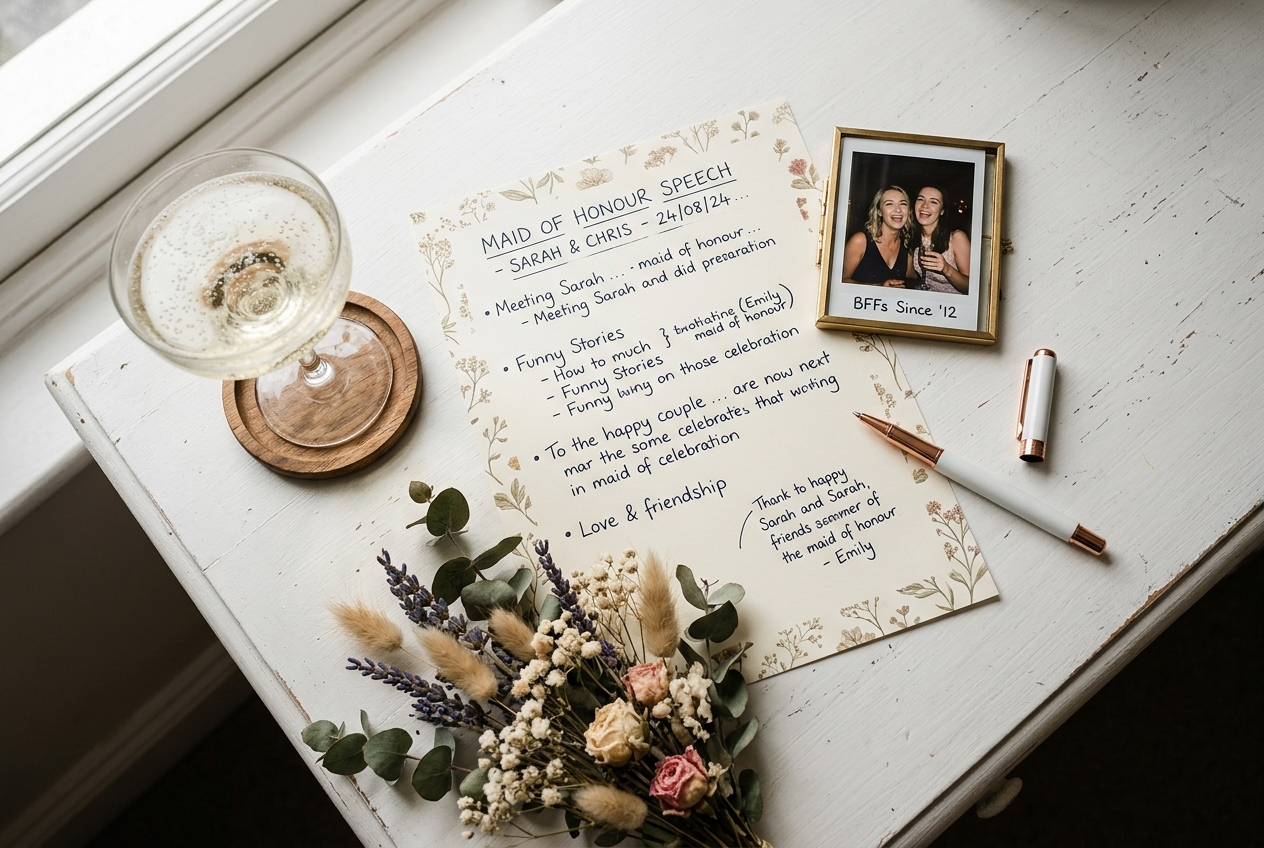 MAID OF HONOUR SPEECH
- SARAH & CHRIS - 24/08/24...
• Meeting Sarah ... - maid of honour ...
- Meeting Sarah and did preparation
• Funny Stories
- How to much
- Funny Stories
(Emily)
maid of honour)
- Funny on those celebration
• To the happy couple ... are now next
mar the some celebrates that
in maid of celebration
• Love & friendship
Thank to happy
Sarah and Sarah,
friends of
the maid of honour
- Emily
BFFs Since '12